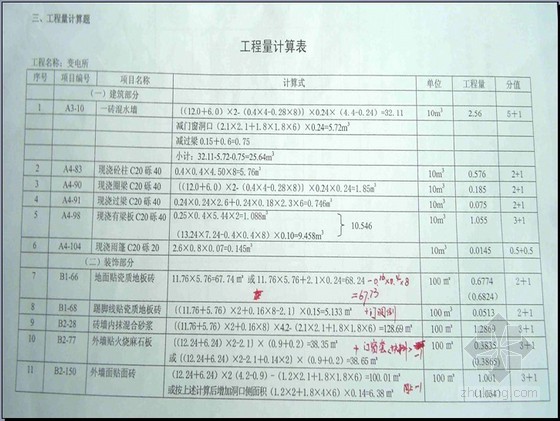 三、工程量计算题
工程量计算表
工程名称：变电所
序号 项目编号 项目名称 计算式 单位 工程量 分值
（一）建筑部分
1 A3-10 一砖混水墙 [(12.0+6.0)×2-(0.4×4-0.28×8)]×0.24×(4.4-0.24)=32.11 10m³ 2.56 5+1
减门窗洞口 (2.1×2.1+1.8×1.8×6)×0.24=5.72m³
减过梁 0.15+0.6=0.75
小计：32.11-5.72-0.75=25.64m³
2 A4-83 现浇砼柱 C20 砾 40 0.4×0.4×4.50×8=5.76m³ 10m³ 0.576 2+1
3 A4-90 现浇圈梁 C20 砾 40 [(12.0+6.0)×2-(0.4×4-0.28×8)]×0.24×0.24=1.85m³ 10m³ 0.185 2+1
4 A4-91 现浇过梁 C20 砾 40 0.24×0.24×2.6+0.24×0.18×2.3×6=0.746m³ 10m³ 0.075 2+1
5 A4-98 现浇有梁板 C20 砾 40 0.25×0.4×5.44×2=1.088m³ 10m³ 1.055 3+1
(13.24×7.24-0.4×0.4×8)×0.10=9.458m³ 10.546
6 A4-104 现浇雨蓬 C20 砾 20 2.6×0.8×0.07=0.145m³ 10m³ 0.0145 0.5+0.5
（二）装饰部分
7 B1-66 地面贴瓷质地板砖 11.76×5.76=67.74㎡ 或 11.76×5.76+2.1×0.24=68.24 100㎡ 0.6774 2+1
=67.73 (0.6824)
8 B1-68 踢脚线贴瓷质地板砖 [(11.76+5.76)×2+0.16×8-2.1)×0.15=5.133㎡ 100㎡ 0.0513 2+1
9 B2-28 砖墙内抹混合砂浆 [(11.76+5.76)×2+0.16×8]×4.2-(2.1×2.1+1.8×1.8×6)=128.69㎡ 100㎡ 1.2869 3+1
10 B2-77 外墙贴火烧麻石板 [(12.24+6.24)×2-2.1)×(0.9+0.2)=38.35㎡ 100㎡ 0.3835 3+1
或 [(12.24+6.24)×2-2.1+0.14×2)×(0.9+0.2)=38.65㎡ (0.3865)
11 B2-150 外墙面贴面砖 (12.24+6.24)×2(4.2-0.9)-(1.2×2.1+1.8×1.8×6)=100.01㎡ 100㎡ 1.001 3+1
或按上述计算后增加洞口侧面积 (1.2×2+1.8×4×6)×0.14=6.38㎡ (1.064)